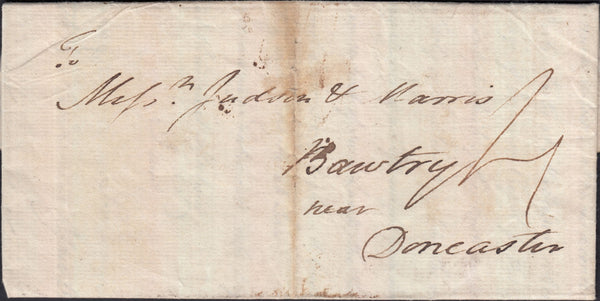 Messrs. Judson & Harris
Bawtry
near
Doncaster